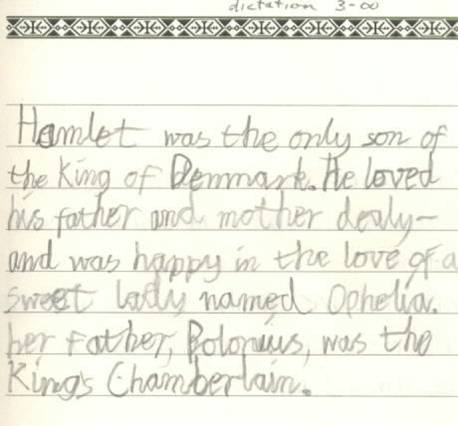 dictation 3-00
Hamlet was the only son of
the King of Denmark. He loved
his father and mother dealy-
and was happy in the love of a
sweet lady named Ophelia.
her Father, Polonius, was the
King's Chamberlain.